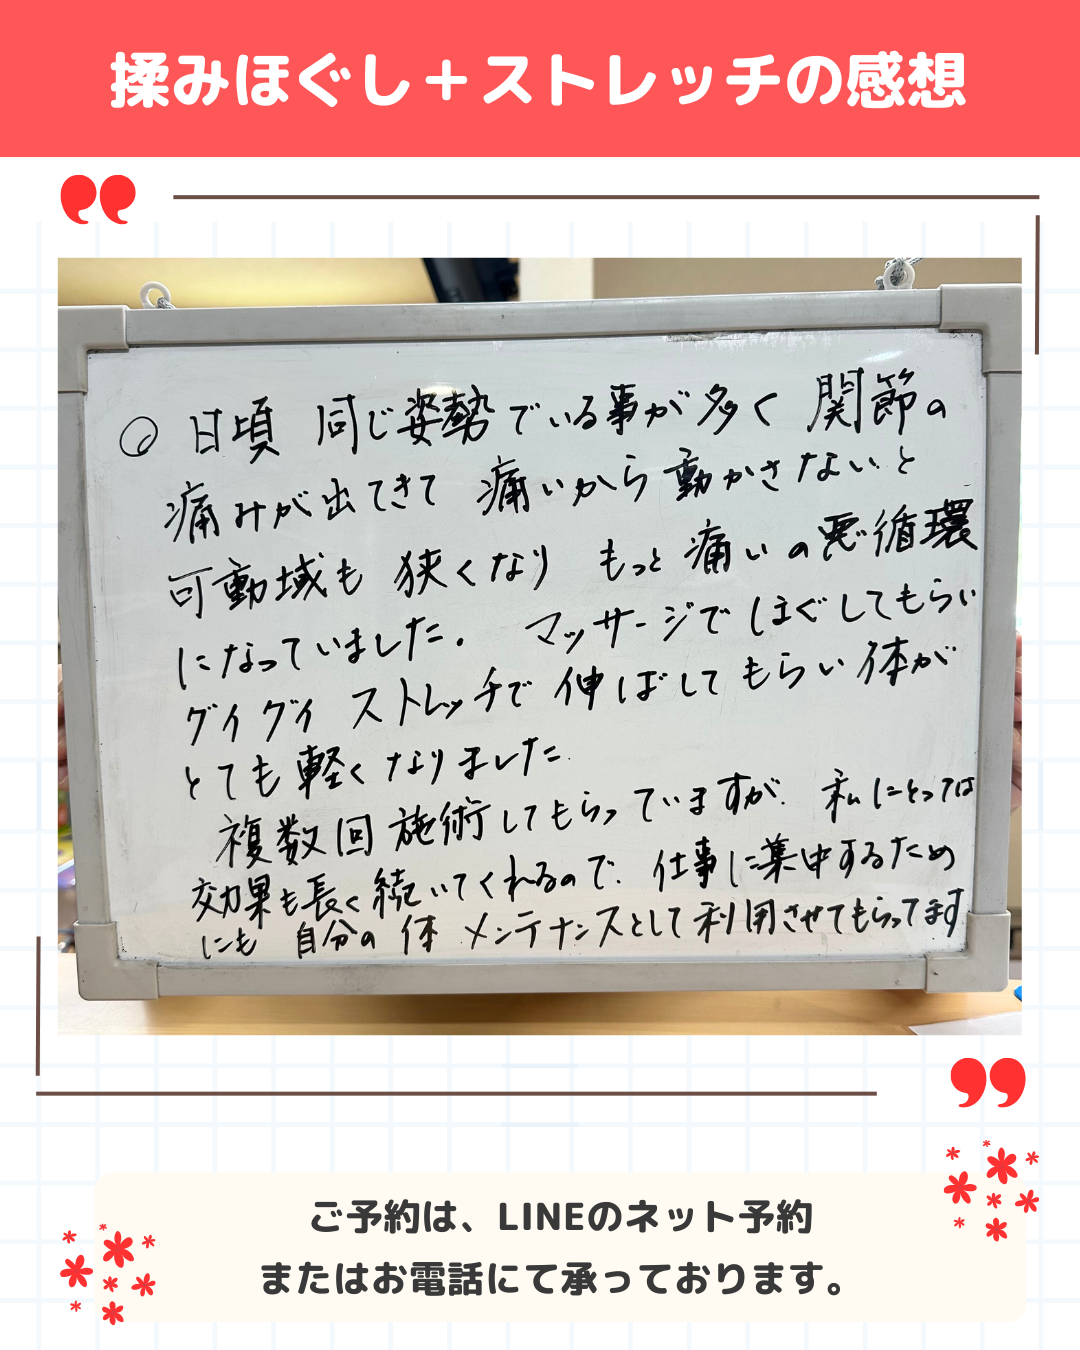 揉みほぐし＋ストレッチの感想
○ 日頃 同じ姿勢でいる事が多く 関節の
痛みが出てきて 痛いから動かさないと
可動域も 狭くなり もっと痛いの悪循環
になっていました. マッサージでほぐしてもらい
グイグイ ストレッチで 伸ばしてもらい体が
とても軽くなりました
複数回 施術してもらっていますが. 私にとっては
効果も長く続いてくれるので. 仕事に集中するため
にも 自分の体 メンテナンスとして利用させてもらってます
ご予約は、LINEのネット予約
またはお電話にて承っております。